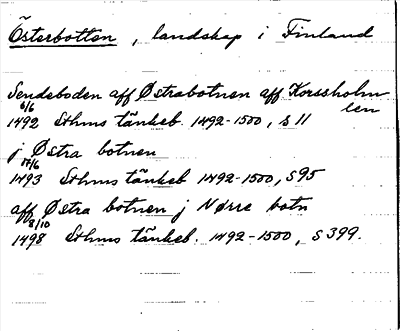 Österbotten, landskap i Finland
Sendeboden aff Østrabotnen aff Korssholm
len
6/6
1492 Sthms tänkeb. 1492-1500, s 11
j Østra botnen
17/6
1493 Sthms tänkeb 1492-1500, s 95
aff Østra botnen j Nørre botn
8/10
1498 Sthms tänkeb. 1492-1500, s 399.